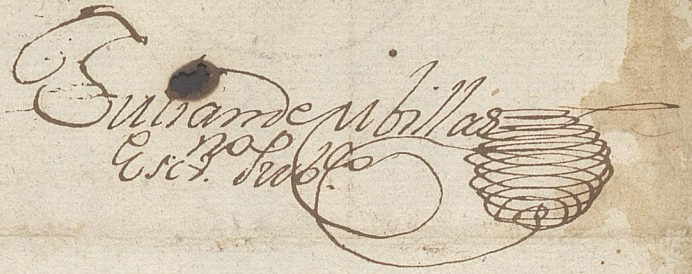 Juliandeubillas
Escr.no Pubco